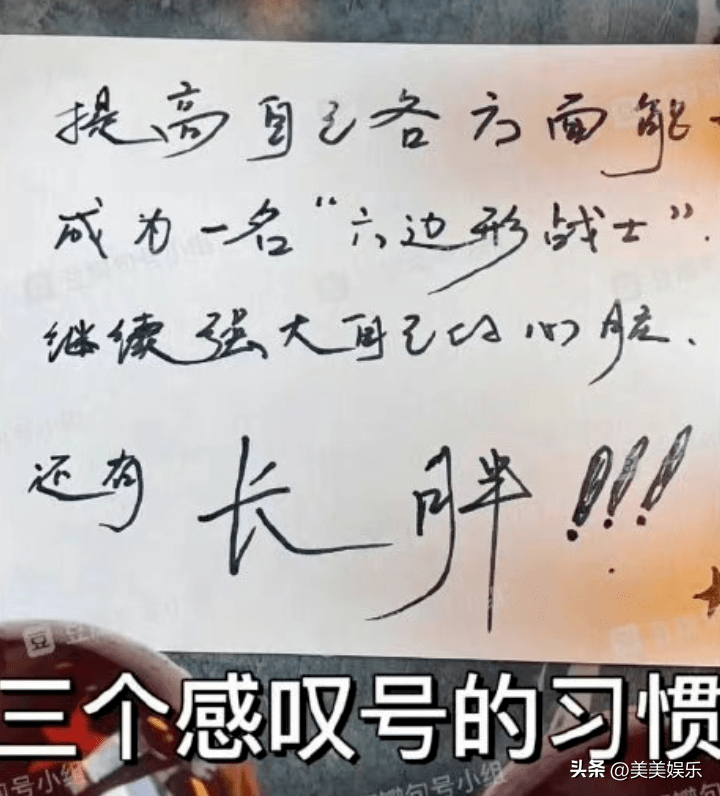 提高自己各方面能
成为一名“六边形战士”.
继续强大自己的心脏、
还有 长胖!!!
三个感叹号的习惯
头条 @美美娱乐